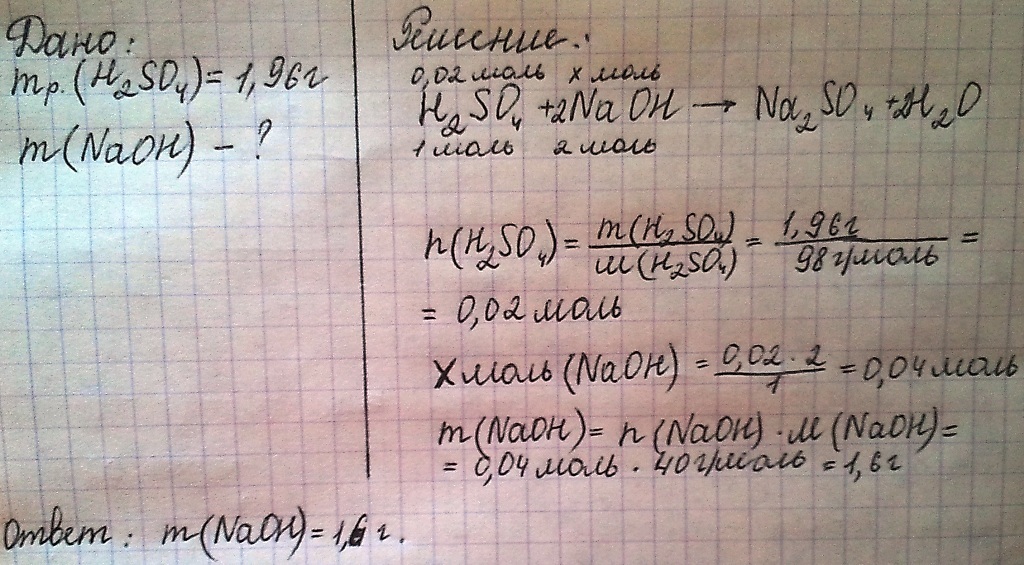 Дано:
mр.(H₂SO₄) = 1,96 г
m(NaOH) – ?
Решение:
0,02 моль x моль
H₂SO₄ + 2NaOH → Na₂SO₄ + 2H₂O
1 моль 2 моль
n(H₂SO₄) = m(H₂SO₄) / M(H₂SO₄) = 1,96 г / 98 г/моль =
= 0,02 моль
X моль (NaOH) = 0,02 · 2 / 1 = 0,04 моль
m(NaOH) = n(NaOH) · M(NaOH) =
= 0,04 моль · 40 г/моль = 1,6 г
Ответ: m(NaOH) = 1,6 г.